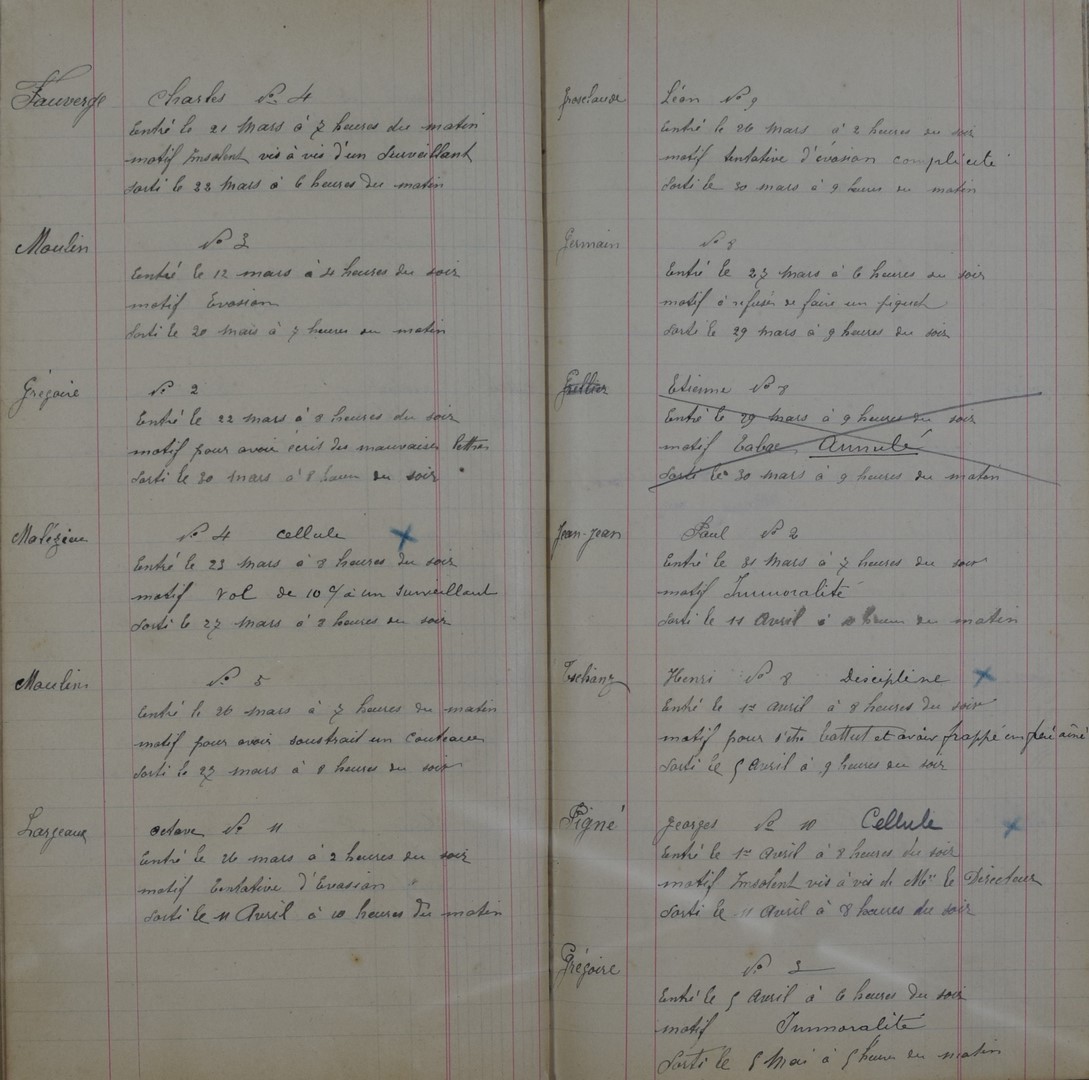 Fauverge Charles No 4
Entré le 21 Mars à 7 heures du matin
motif Insolent vis à vis d'un Surveillant
Sorti le 22 Mars à 6 heures du matin
Moulin No 3
Entré le 12 mars à 4 heures du soir
motif Evasion
Sorti le 20 mars à 7 heures du matin
Grégoire No 2
Entré le 22 mars à 8 heures du soir
motif pour avoir écris des mauvaises lettres
Sorti le 30 mars à 8 heures du soir
Malézieu No 4 cellule
Entré le 23 mars à 8 heures du soir
motif Vol de 10 à un Surveillant
Sorti le 27 mars à 8 heures du soir
Moulin No 5
Entré le 26 mars à 7 heures du matin
motif pour avoir soustrait un couteau
Sorti le 27 mars à 8 heures du soir
Largeau octave No 11
Entré le 26 mars à 2 heures du soir
motif Tentative d'Evasion
Sorti le 11 Avril à 10 heures du matin
Grosclaude Léon No 9
Entré le 26 mars à 2 heures du soir
motif tentative d'évasion complicité
Sorti le 30 mars à 9 heures du matin
Germain No 8
Entré le 27 mars à 6 heures du soir
motif à refuser de faire un piquet
Sorti le 29 mars à 9 heures du soir
Etienne No 8
Entré le 29 mars à 9 heures du soir
motif Tabac Annulé
Sorti le 30 mars à 9 heures du matin
Jean-Jean Paul No 2
Entré le 31 Mars à 7 heures du soir
motif Immoralité
Sorti le 11 Avril à heures du matin
Tschanz Henri No 8 Discipline
Entré le 1er Avril à 8 heures du soir
motif pour s'etre battut et avoir frappé un frère aîné
Sorti le 5 Avril à 9 heures du soir
Pigné Georges No 10 Cellule
Entré le 1er Avril à 8 heures du soir
motif Insolent vis à vis de Mr le Directeur
Sorti le 11 Avril à 8 heures du soir
Grégoire No 3
Entré le 5 Avril à 6 heures du soir
motif Immoralité
Sorti le 5 Mai à 5 heures du matin